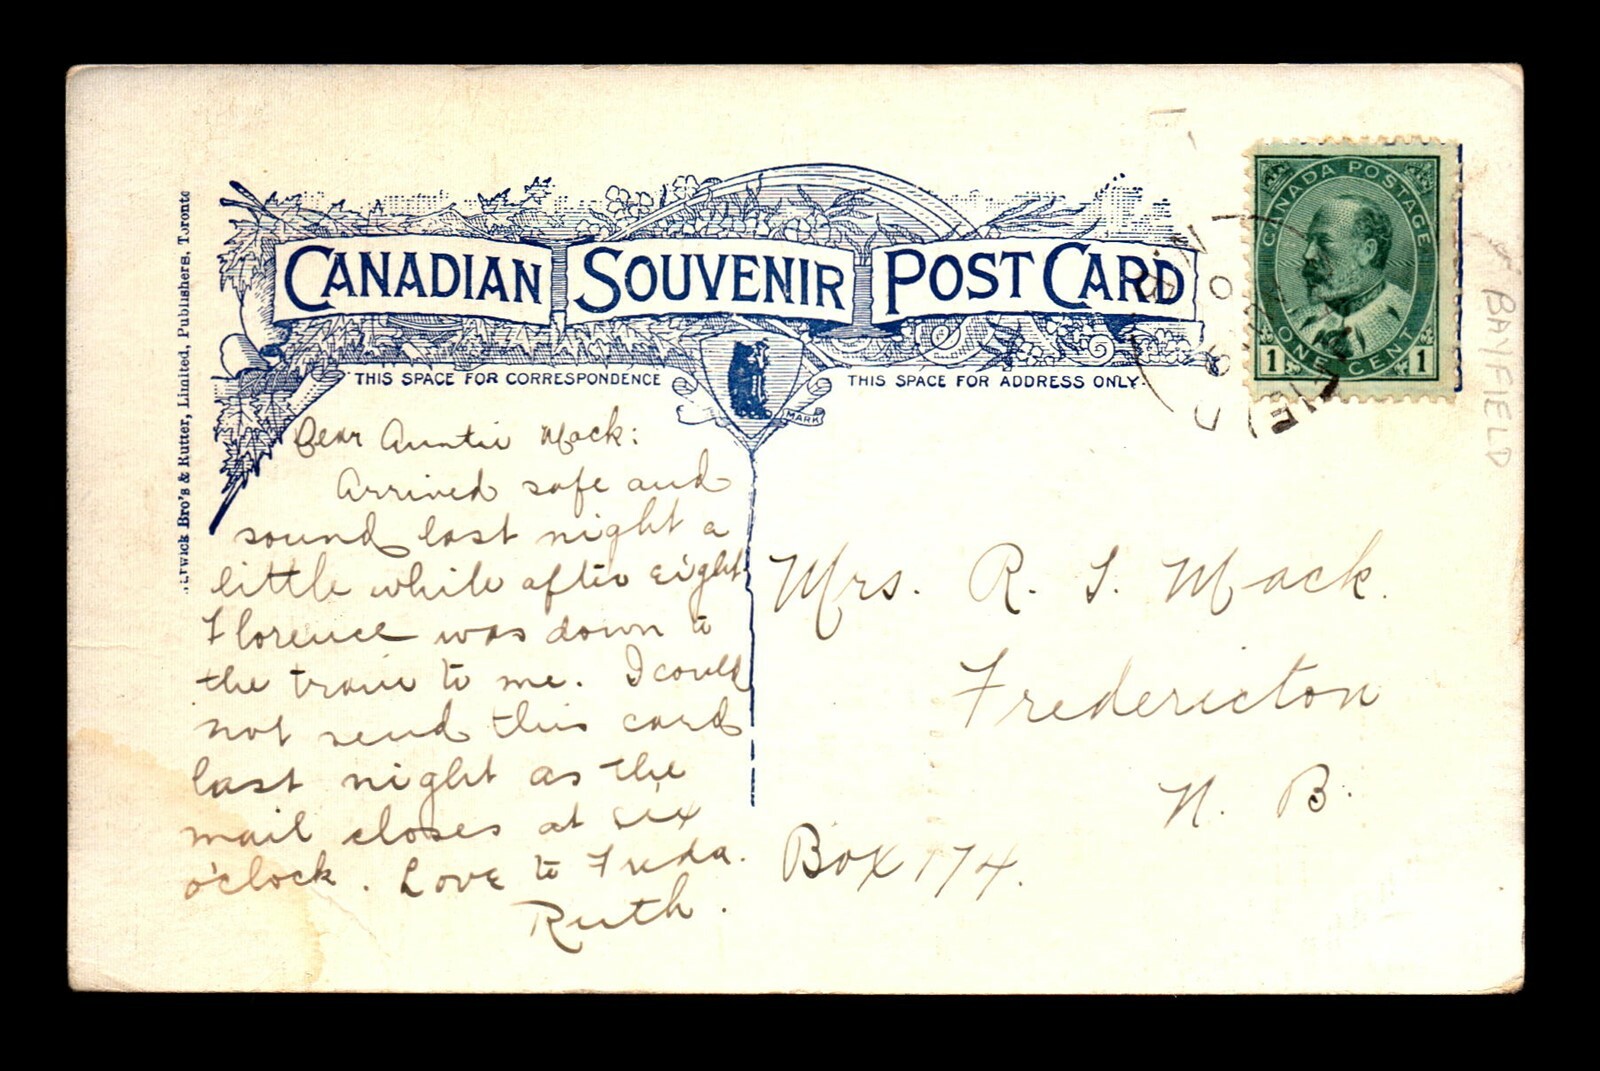 CANADIAN SOUVENIR POST CARD
THIS SPACE FOR CORRESPONDENCE
THIS SPACE FOR ADDRESS ONLY.
MARK
Bro's & Rutter, Limited, Publishers, Toronto
CANADA POSTAGE
1 ONE CENT 1
BAYFIELD
Dear Auntie Mack:
Arrived safe and
sound last night a
little while after eight
Florence was down to
the train to me. I could
not send this card
last night as the
mail closes at six
o'clock. Love to Freda.
Ruth.
Mrs. R. S. Mack.
Fredericton
N. B.
Box 174.